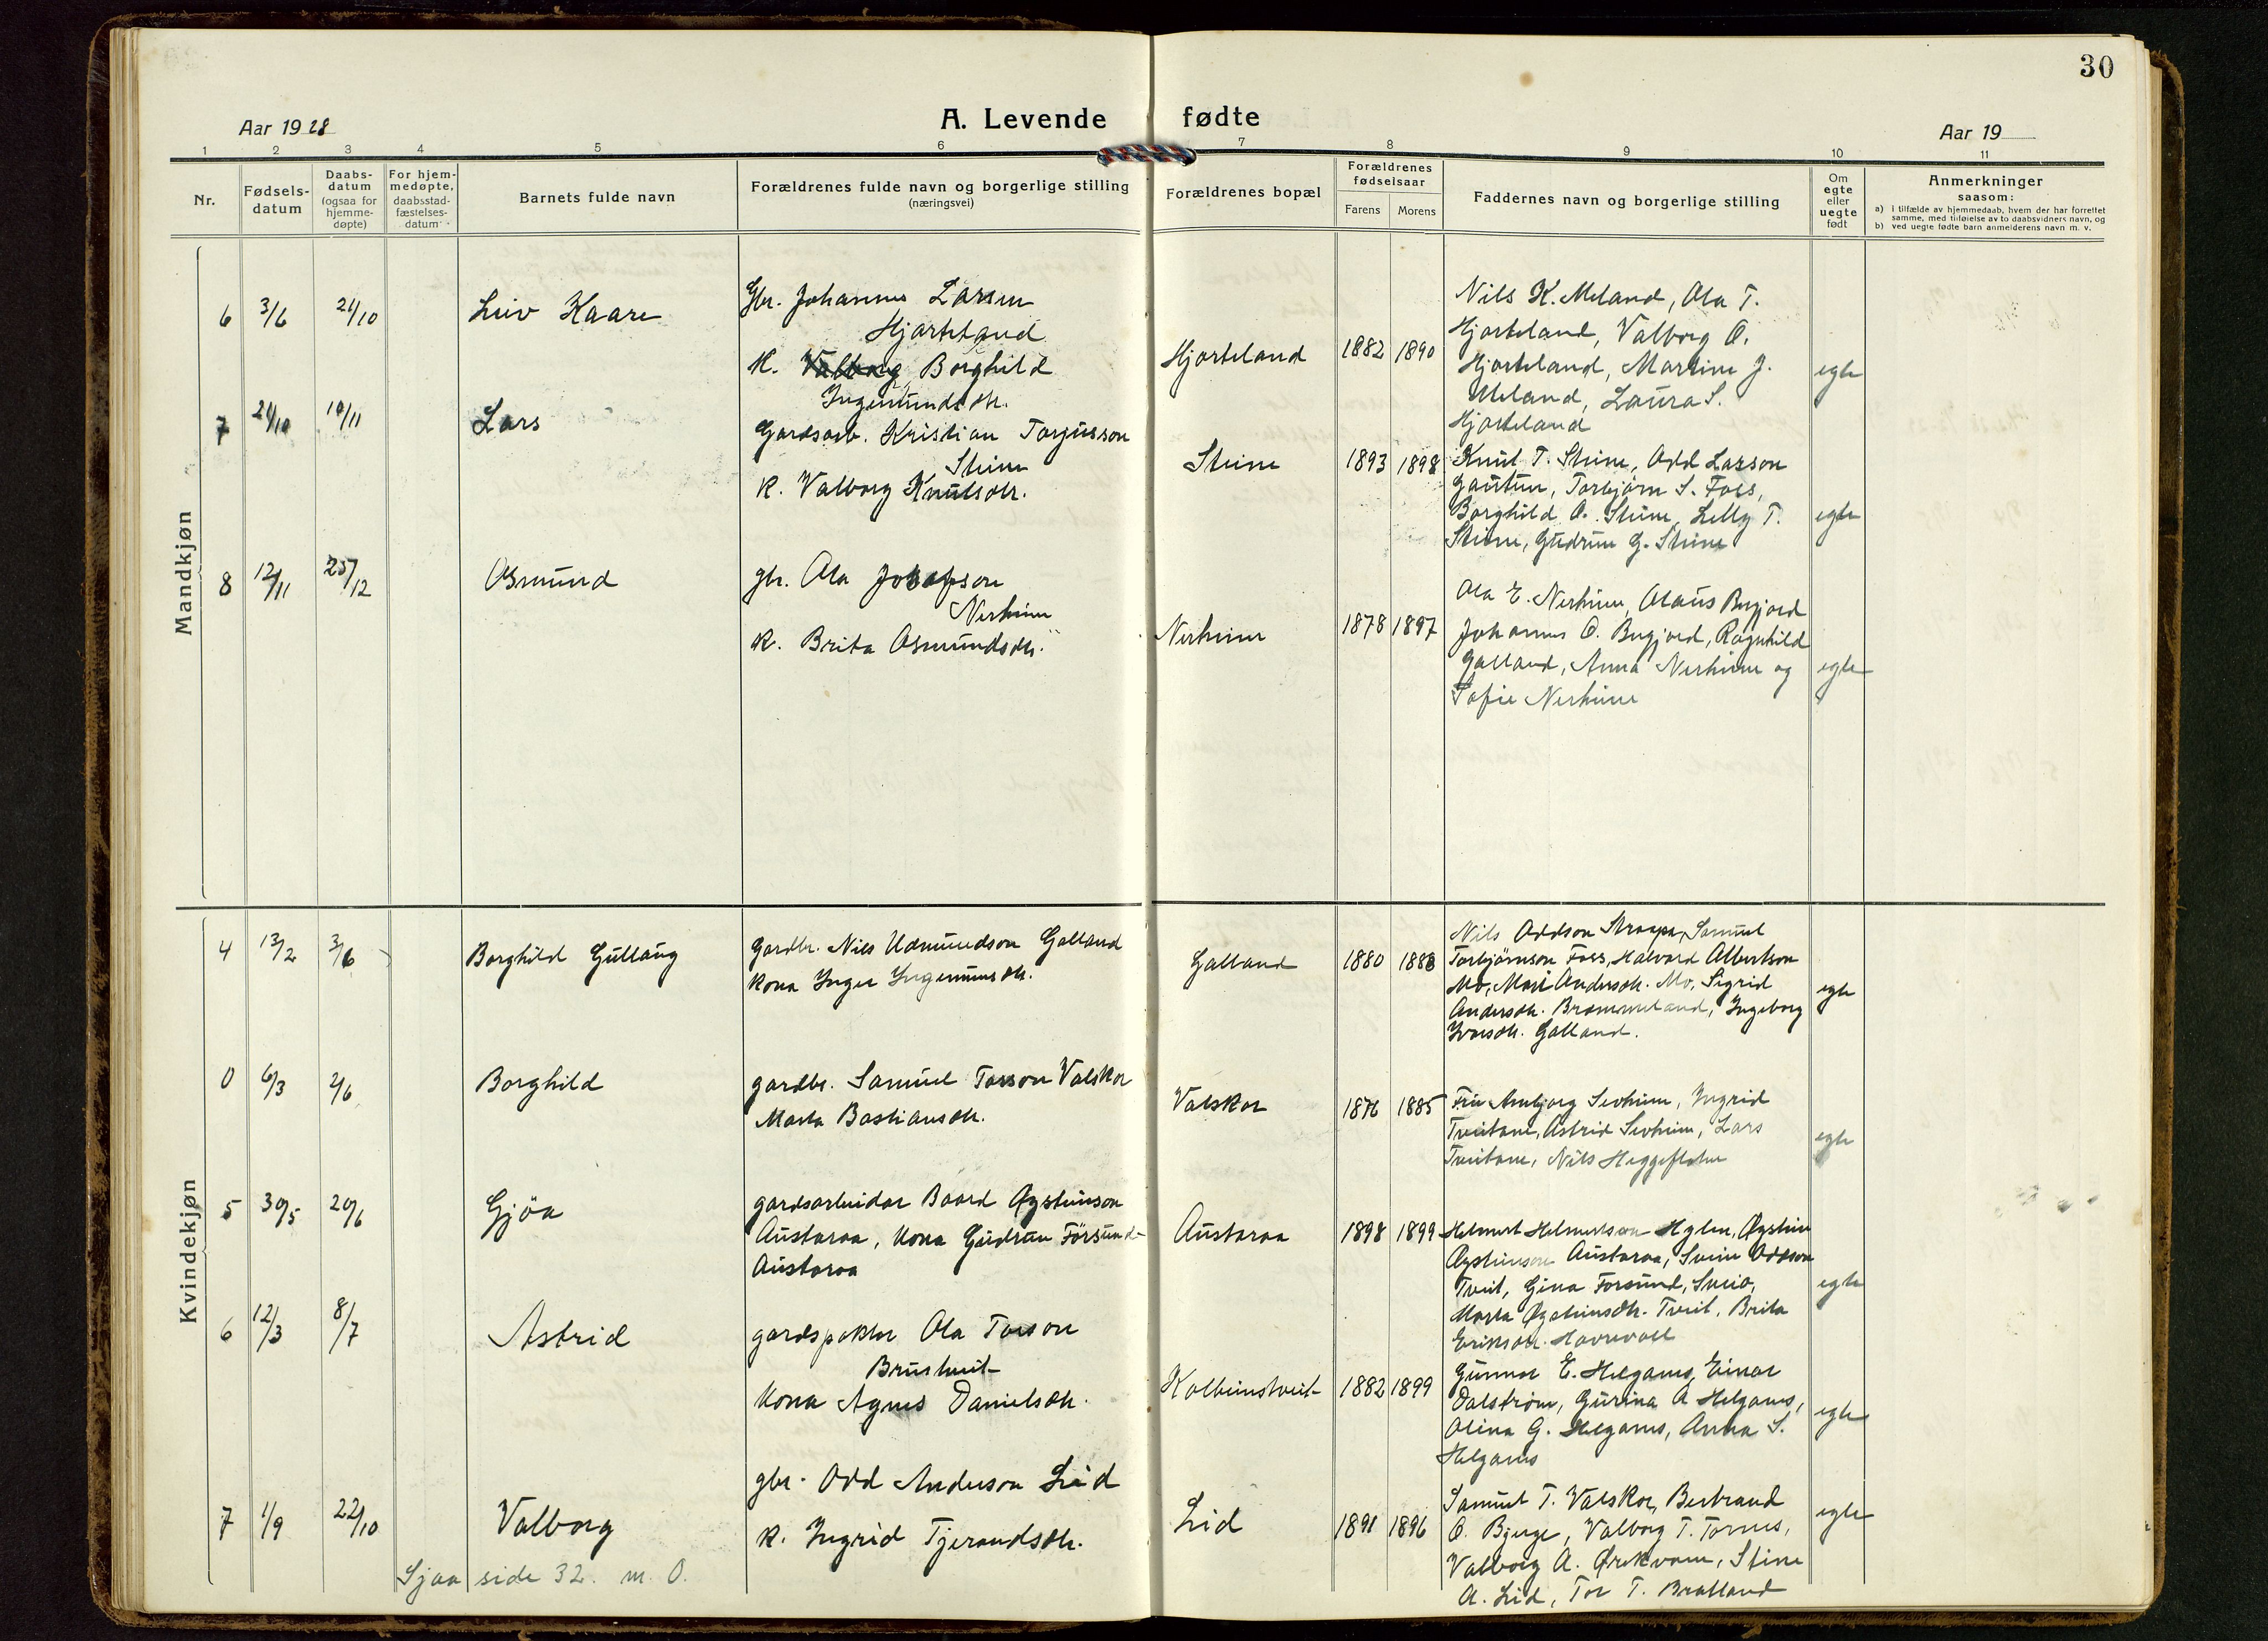 30
Aar 1928
A. Levende fødte
Aar 19
1 2 3 4 5 6 7 8 9 10 11
Nr.
Fødsels-
datum
Daabs-
datum
(ogsaa for
hjemme-
døpte)
For hjem-
medøpte,
daabsstad-
fæstelses-
datum
Barnets fulde navn
Forældrenes fulde navn og borgerlige stilling
(næringsvei)
Forældrenes bopæl
Forældrenes
fødselsaar
Farens Morens
Faddernes navn og borgerlige stilling
Om
egte
eller
uegte
født
Anmerkninger
saasom:
a) i tilfælde av hjemmedaab, hvem der har forrettet
samme, med tilføielse av to daabsvidners navn, og
b) ved uegte fødte barn anmelderens navn m. v.
Mandkjøn
6 3/6 21/10 Leiv Kaare
Gbr. Johannes Larsen
Hjorteland
K. Valborg Borghild
Ingemundsdtr.
Hjorteland 1882 1890
Nils K. Meland, Ola T.
Hjorteland, Valborg O.
Hjorteland, Martine J.
Meland, Laura S.
Hjorteland
egte
7 21/10 18/11 Lars
Gardsarb. Kristian Torjusson
Steine
K. Valborg Knutsdtr.
Steine 1893 1898
Knut T. Steine, Odd Larson
Gautun, Torbjørn S. Foss,
Borghild O. Steine, Lelly T.
Steine, Gudrun G. Steine
egte
8 12/11 25/12 Osmund
gbr. Ola Josefson
Nerheim
K. Brita Osmundsdtr.
Nerheim 1878 1897
Ola E. Nerheim, Olaus Bygjord
Johannes O. Bygjord, Ragnhild
Galland, Anna Nerheim og
Sofie Nerheim
egte
Kvindekjøn
4 13/2 3/6 Borghild Gullaug
Gardbr. Nils Udmundson Galland
Kona Inger Ingemunsdtr.
Galland 1880 1888
Nils Oddson Straapa, Samuel
Torbjørnson Foss, Halvord Albertson
Mo, Mari Andersdtr. Mo, Sigrid
Andersdtr. Brommeland, Ingeborg
Iversdtr. Galland.
egte
0 6/3 2/6 Borghild
gardbr. Samuel Torson Valskor
Marta Bastiansdtr.
Valskor 1876 1885
Fru Arnbjorg Sevheim, Ingrid
Tveitane, Astrid Sevheim, Lars
Tveitane, Nils Heggeflohn
egte
5 30/5 20/6 Gjöa
gardsarbeidar Baard Øysteinson
Austaraa, Kona Gudrun Försund-
Austaraa
Austaraa 1898 1899
Helmert Helmertson Hylen, Øystein
Øysteinson Austaraa, Svein Oddson
Tveit, Gina Forsund, Sveio,
Marta Øysteinsdtr. Tveit, Brita
Eriksdtr. Havrevoll
egte
6 12/3 8/7 Astrid
gardspaktar Ola Torson
Brusteit
Kona Agnes Danielsdtr.
Kolbeinstveit 1882 1899
Gunnar E. Helganes, Einar
Dalstrøm, Gurina A Helganes,
Olina G. Helganes, Anna S.
Helganes
egte
7 1/9 22/10 Valborg
gbr. Odd Anderson Lid
K. Ingrid Tjerandsdtr.
Lid 1891 1896
Samuel T. Valskor, Bertrand
O. Bjerge, Valborg T. Tornes,
Valborg A. Ørekvam, Stine
A. Lid, Tor T. Bratland
egte
Sjaa side 32. m. O.